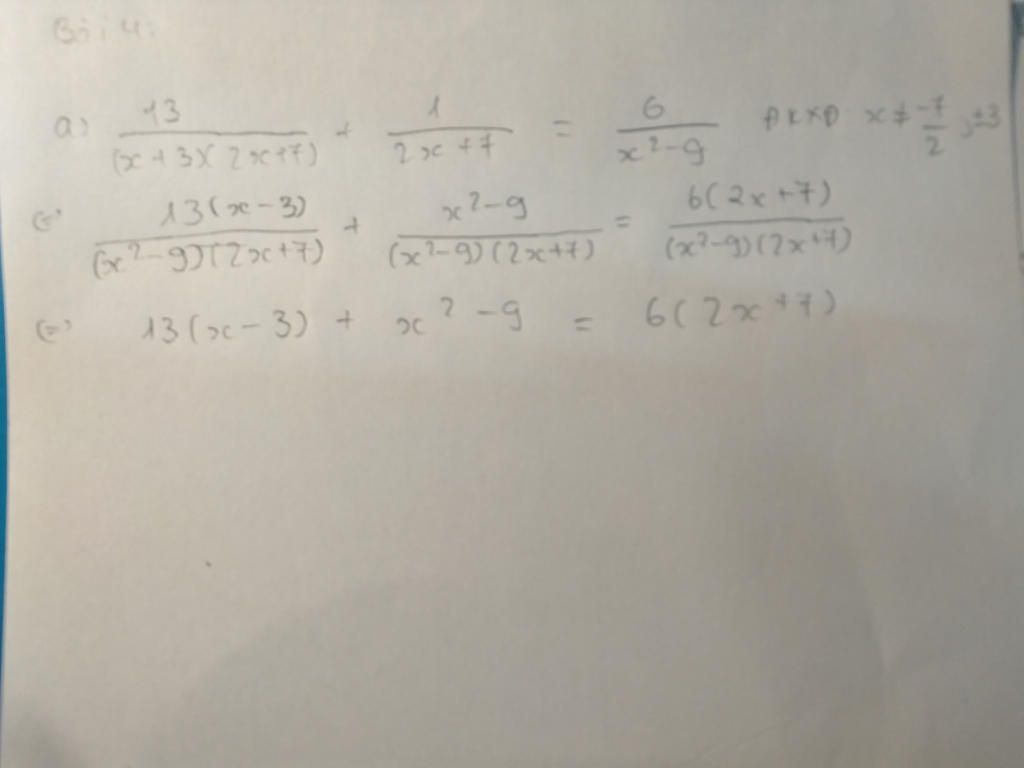 Bài 4:
a) 13/((x+3)(2x+7)) + 1/(2x+7) = 6/(x²-9) ĐKXĐ x ≠ -7/2, ±3
(=) 13(x-3)/((x²-9)(2x+7)) + (x²-9)/((x²-9)(2x+7)) = 6(2x+7)/((x²-9)(2x+7))
(=) 13(x-3) + x²-9 = 6(2x+7)